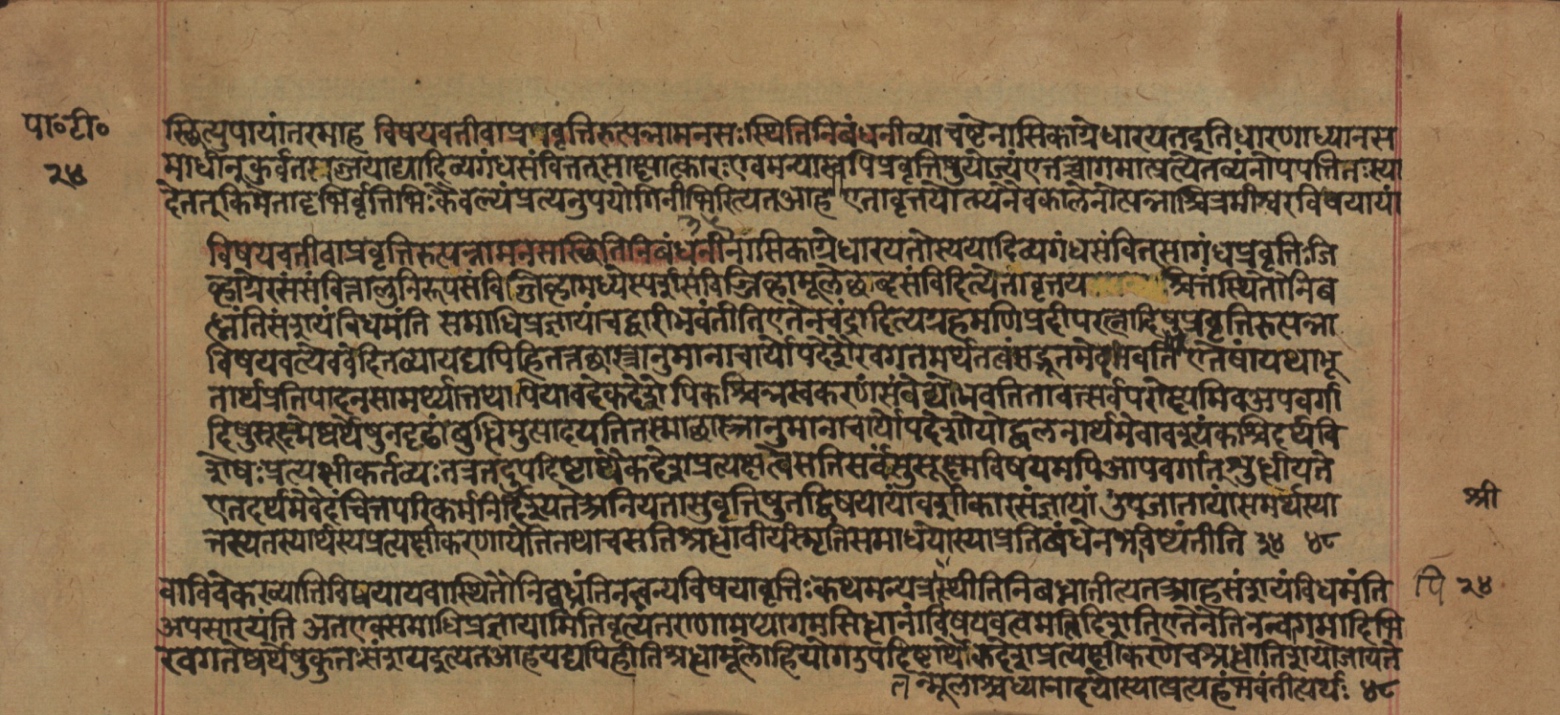 पा॰टी॰
२४
स्थित्युपायांतरमाह विषयवतीवाप्रवृत्तिरुत्पन्नामनसःस्थितिनिबंधनीव्याचष्टेनासिकाग्रेधारयतइतिधारणाध्यानस
माधीन्कुर्वतस्तज्जयाद्यादिव्यगंधसंवित्तत्साक्षात्कारःएवमन्यास्वपिप्रवृत्तिषुयोज्यंएतच्चागमात्प्रत्येतव्यंनोपपत्तितःस्या
देतत्किमेतादृग्भिर्वृत्तिभिःकैवल्यंप्रत्यनुपयोगिनीभिरित्यतआह एतावृत्तयोल्पेनैवकालेनोत्पन्नाश्चित्तमीश्वरविषयायां
विषयवतीवाप्रवृत्तिरुत्पन्नामनसःस्थितिनिबंधनी नासिकाग्रेधारयतोस्ययादिव्यगंधसंवित्सागंधप्रवृत्तिःजि
व्हाग्रेरससंवित्तालुनिरूपसंविज्जिव्हामध्येस्पर्शसंविज्जिव्हामूलेशब्दसंविदित्येतावृत्तय श्चित्तंस्थितौनिब
ध्नंतिसंशयंविधमंति समाधिप्रज्ञायांचद्वारीभवंतीतिएतेनचंद्रादित्यग्रहमणिप्रदीपरत्नादिषुप्रवृत्तिरुत्पन्ना
विषयवत्येववेदितव्यायद्यपिहितत्तच्छास्त्रानुमानाचार्योपदेशैरवगतमर्थतत्वंसद्भूतमेवभवति एतेषांयथाभू
तार्थप्रतिपादनसामर्थ्यात्तथापियावदेकदेशोपिकश्चिन्नस्वकरणसंवेद्योभवतितावत्सर्वंपरोक्षमिवअपवर्गा
दिषुसूक्ष्मेष्वर्थेषुनदृढांबुद्धिमुत्पादयतितस्माच्छास्त्रानुमानाचार्योपदेशोपोद्बलनार्थमेवावश्यंकश्चिदर्थवि
शेषःप्रत्यक्षीकर्तव्यःतत्रतदुपदिष्टार्थैकदेशप्रत्यक्षत्वेसतिसर्वंसुसूक्ष्मविषयमपिआपवर्गात्सुश्रद्धीयते
एतदर्थमेवेदंचित्तपरिकर्मनिर्दिश्यतेअनियतासुवृत्तिषुतद्विषयायांवशीकारसंज्ञायां उपजातायांसमर्थंस्या
त्तस्यतस्यार्थस्यप्रत्यक्षीकरणायेतितथाचसतिश्रद्धावीर्यस्मृतिसमाधयोस्याप्रतिबंधेनभविष्यंतीति ३४ ४८
श्री
वाविवेकख्यातिविषयायांवास्थितौनिबध्नंतिनत्वन्यविषयावृत्तिःकथमन्यत्रस्थितिंनिबध्नातीत्यतआहसंशयंविधमंति
पि २४
अपसारयंति अतएवसमाधिप्रज्ञायामितिवृत्यंतराणामप्यागमसिद्धानांविषयवत्वमतिदिशतिएतेनेतिनन्वागमादिभि
रवगतेष्वर्थेषुकुतःसंशयइत्यतआहयद्यपिहीतिश्रद्धामूलोहियोगउपदिष्टार्थैकदेशप्रत्यक्षीकरणेचश्रद्धातिशयोजायते
तन्मूलाश्चध्यानादयोस्याप्रत्यूहंभवंतीत्यर्थः ४८